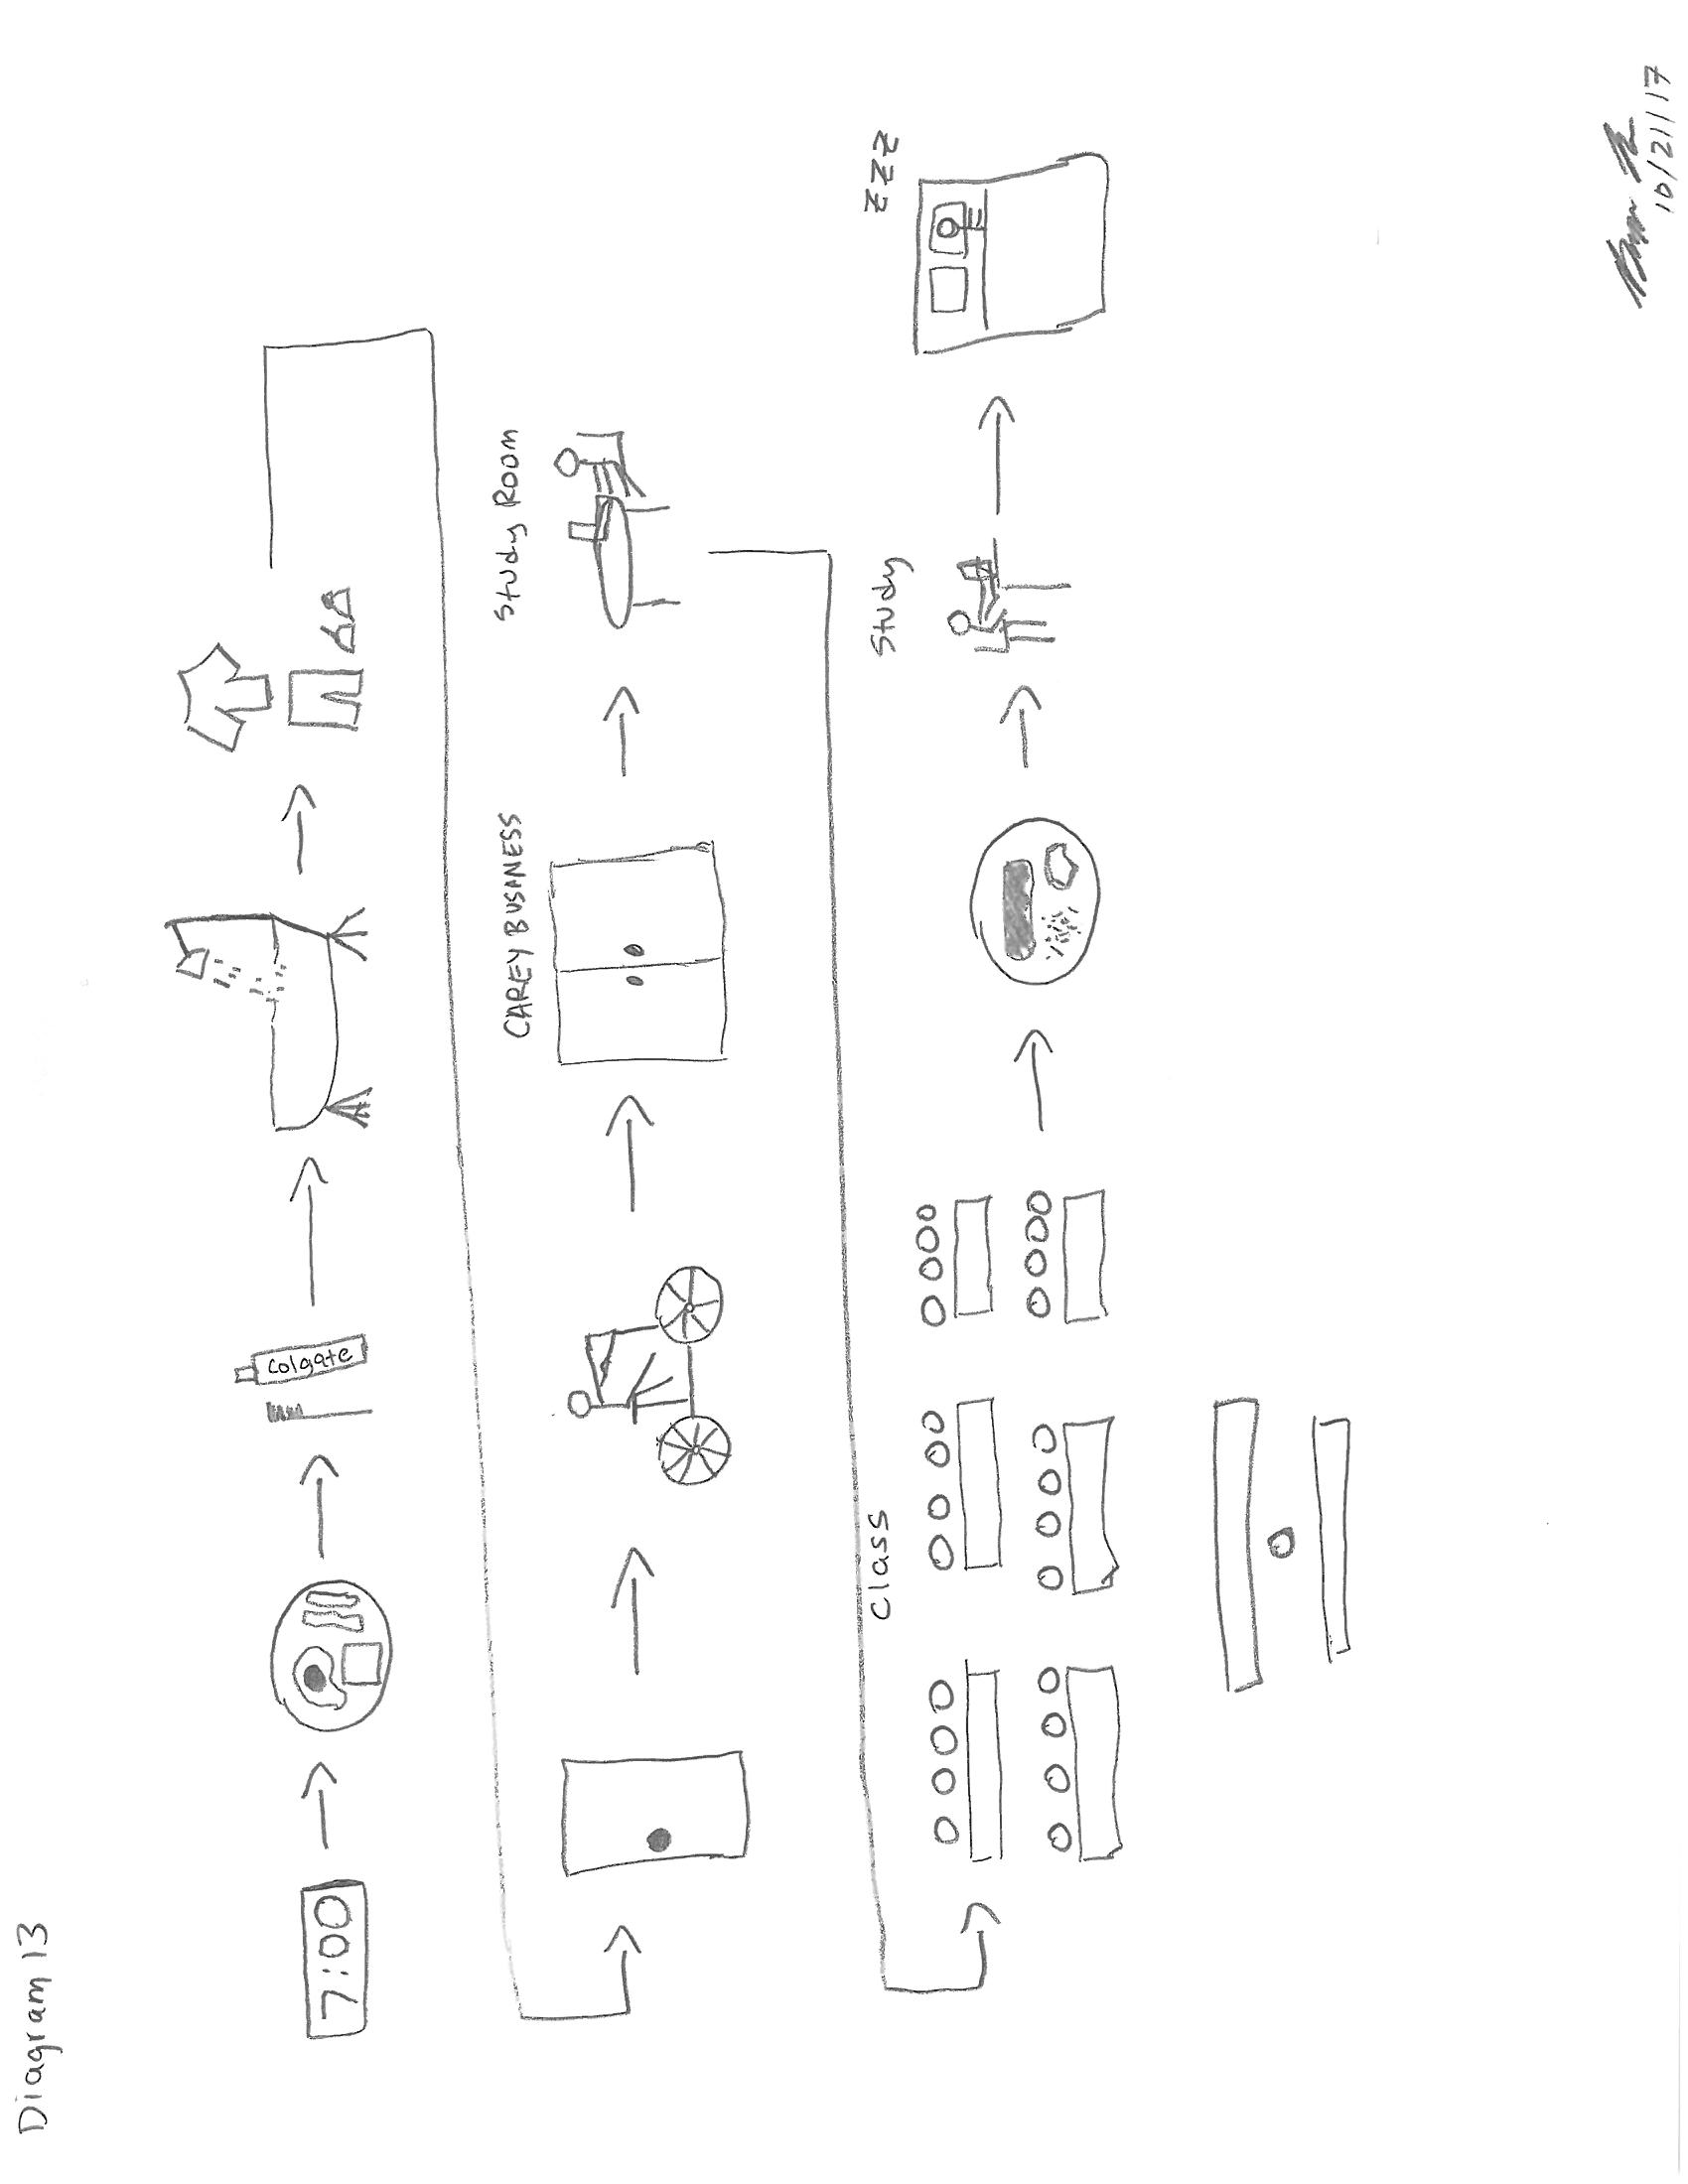 Diagram 13
7:00
Colgate
CAREY BUSINESS
Study Room
Class
Study
ZZZ
10/21/17